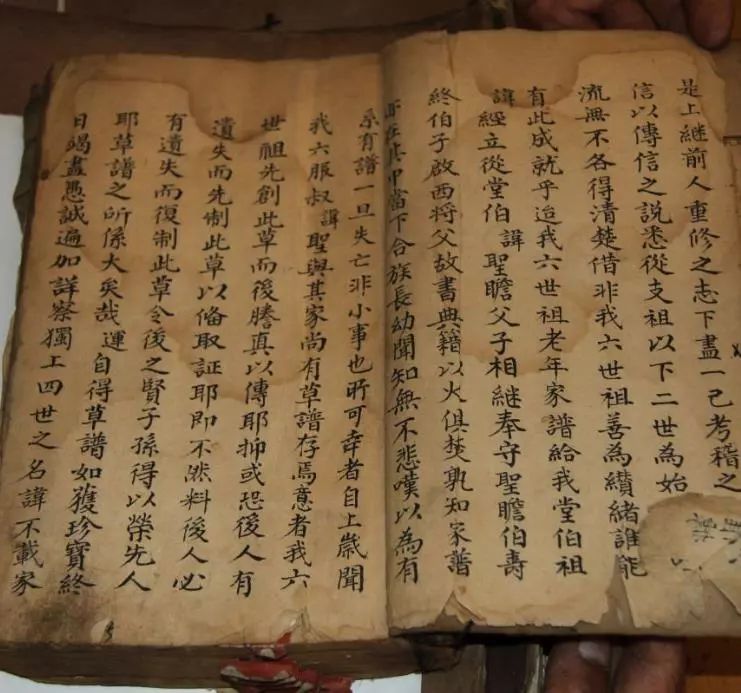 是上継前人重修之志下盡一己考稽之
信以傳信之說悉從支祖以下二世為始
流無不各得清楚借非我六世祖善為纘緒誰能
有此成就乎迨我六世祖老年家譜給我堂伯祖
諱經立從堂伯諱聖瞻父子相継奉守聖瞻伯壽
終伯子啟西將父故書典籍以火俱焚孰知家譜
亦在其中當下合族長幼聞知無不悲嘆以為有
系有譜一旦失亡非小事也所可幸者自上歲聞
我六服叔諱聖與其家尚有草譜存焉意者我六
世祖先創此草而後謄真以傳耶抑或恐後人有
遺失而先制此草以備取証耶即不然料後人必
有遺失而復制此草令後之賢子孫得以榮先人
耶草譜之所係大矣哉運自得草譜如獲珍寶終
日竭盡愚誠遍加詳察獨上四世之名諱不載家